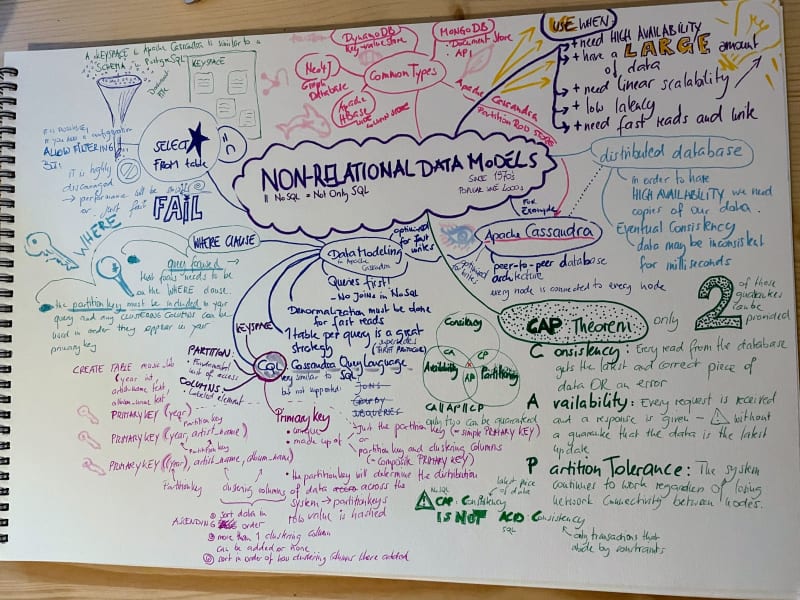 A KEYSPACE in Apache Cassandra is similar to a
SCHEMA in PostgreSQL
KEYSPACE
DynamoDB
Key-value Store
MongoDB
• Document Store
API
Neo4J
Graph
Database
Common Types
Apache
HBase
Apache Cassandra
Partition ROW STORE
USE WHEN
+ need HIGH AVAILABILITY
+ have a LARGE amount
of data
+ need linear scalability
+ low latency
+ need fast reads and write
SELECT
FROM table
ALLOW FILTERING
BUT:
it is highly
discouraged
→ performance will be
or just fail
FAIL
NON-RELATIONAL DATA MODELS
NoSQL = Not Only SQL
SINCE 1970's
distributed database
in order to have
HIGH AVAILABILITY we need
copies of our data.
Eventual Consistency
data may be inconsistent
for milliseconds
FOR
Example
Apache Cassandra
optimized
peer-to-peer database
architecture
every node is connected to every node
WHERE
WHERE CLAUSE
the partition key must be included in your
query and any CLUSTERING COLUMNS can be
used in order they appear in your
primary key
Data Modeling
in Apache
Cassandra
optimized
for fast
writes
Queries first!
- No Joins in NoSQL
Denormalization must be done
for fast reads
1 table per query is a great
strategy
KEYSPACE
CQL: Cassandra Query Language
very similar to SQL
but not supported:
JOINS
GROUP BY
SUBQUERIES
PARTITION:
• Fundamental
unit of access
COLUMNS
- Labeled element
CREATE TABLE music_lib
(year int,
artist_name text
album_name text
PRIMARY KEY (year)
Partition key
PRIMARY KEY (year, artist_name)
Partition key
PRIMARY KEY ((year), artist_name, album_name)
Partition key
clustering columns
① sort data in
ASCENDING order
② more than 1 clustering column
can be added or none
③ sort in order of how clustering columns where added
Primary key
• unique
• made up of
Just the partition key (= simple PRIMARY KEY)
or
partition key and clustering columns
(= composite PRIMARY KEY)
• the partition key will determine the distribution
of data across the
system → partition keys
row value is hashed
Consistency
CA
CP
Availability
Partitioning
AP
CA/AP/CP
only two can be guaranteed
CAP Theorem
only 2 of those
guarantees
can be
provided
Consistency: Every read from the database
gets the latest and correct piece of
data OR an error
Availability: Every request is received
and a response is given - without
a guarantee that the data is the latest
update
Partition Tolerance: The system
continues to work regardless of losing
network connectivity between nodes.
NoSQL
latest piece
of data
CAP: Consistency
IS NOT ACID: Consistency
SQL
only transactions that
abide by constraints